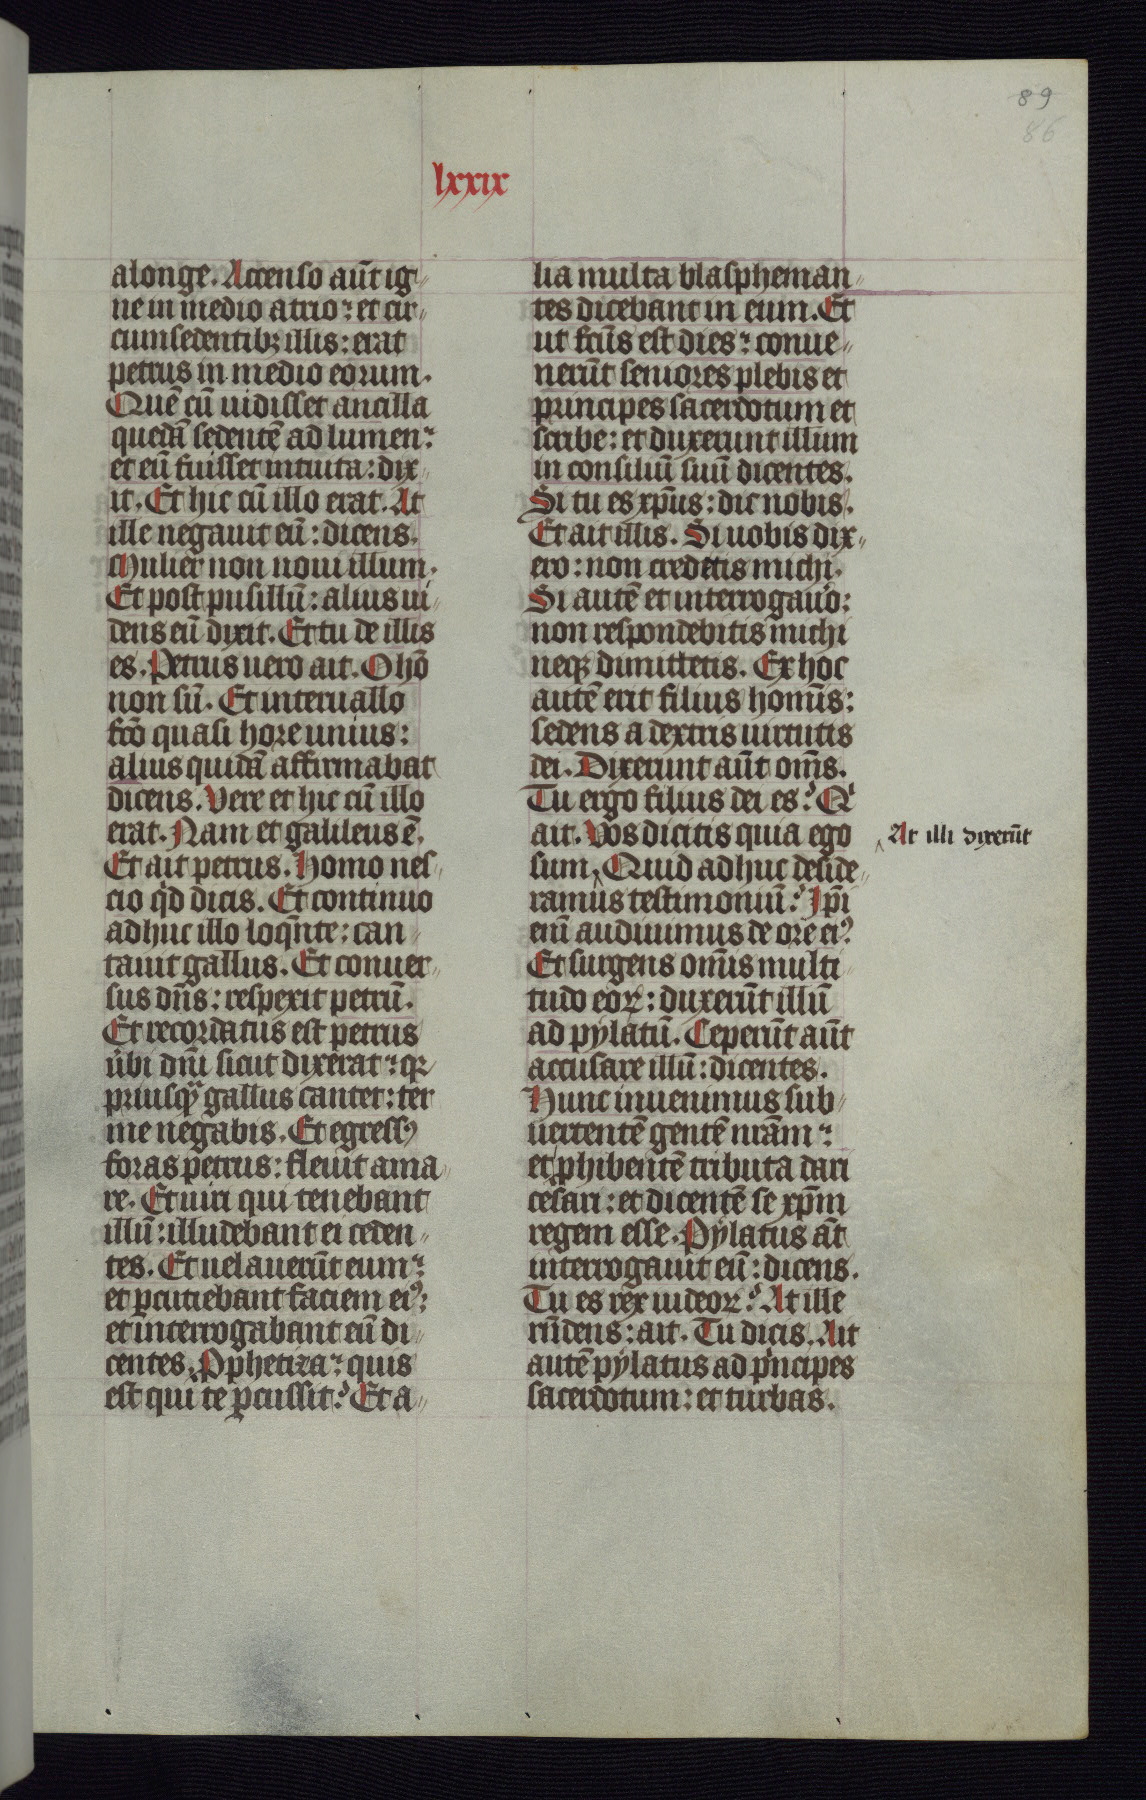 89
86
lxxix
alonge. Accenso aūt ig-
ne in medio atrio: et cir-
cumsedentibꝫ illis: erat
petrus in medio eorum.
Quē cū uidisset ancilla
quedā sedentē ad lumen:
et eū fuisset intuita: dix-
it. Et hic cū illo erat. At
ille negauit eū: dicens.
Mulier non noui illum.
Et post pusillū: alius ui-
dens eū dixit. Et tu de illis
es. Petrus uero ait. O hō
non sū. Et interuallo
fcō quasi hore unius:
alius quidā affirmabat
dicens. Vere et hic cū illo
erat. Nam et galileus ē.
Et ait petrus. Homo nes-
cio qd dicis. Et continuo
adhuc illo loqnte: can-
tauit gallus. Et conuer-
sus dn̄s: respexit petrū.
Et recordatus est petrus
ūbi dn̄i sicut dixerat: qꝛ
priusqͣ gallus cantet: ter
me negabis. Et egressꝰ
foras petrus: fleuit ama-
re. Et uiri qui tenebant
illū: illudebant ei ceden-
tes. Et uelauerūt eum:
et ꝑcutiebant faciem eiꝰ:
et interrogabant eū di-
centes. Pphetiza: quis
est qui te ꝑcussit? Et a-
lia multa blaspheman-
tes dicebant in eum. Et
ut fcūs est dies: conue-
nerūt seniores plebis et
principes sacerdotum et
scribe: et duxerunt illum
in consiliū suū dicentes.
Si tu es xp̄us: dic nobis.
Et ait illis. Si uobis dix-
ero: non credetis michi.
Si autē et interrogauō:
non respondebitis michi
neqꝫ dimittetis. Ex hoc
autē erit filius homīs:
sedens a dextris uirtutis
dei. Dixerunt aūt om̄s.
Tu ergo filius dei es? Qͥ
ait. Vos dicitis quia ego
sum. Quid adhuc deside-
ramus testimoniū? Ip̄i
eniū audiuimus de ore eiꝰ.
Et surgens om̄is multi-
tudo eoꝝ: duxerūt illū
ad pylatū. Ceperūt aūt
accusare illū: dicentes.
Hunc inuenimus sub-
uertentē gentē nrām:
et ꝓhibentē tributa dari
cesari: et dicentē se xp̄m
regem esse. Pylatus āt
interrogauit eū: dicens.
Tu es rex iudeoꝝ? At ille
rn̄dens: ait. Tu dicis. Ait
autē pylatus ad pͥncipes
sacerdotum: et turbas.
At illi dixerūt